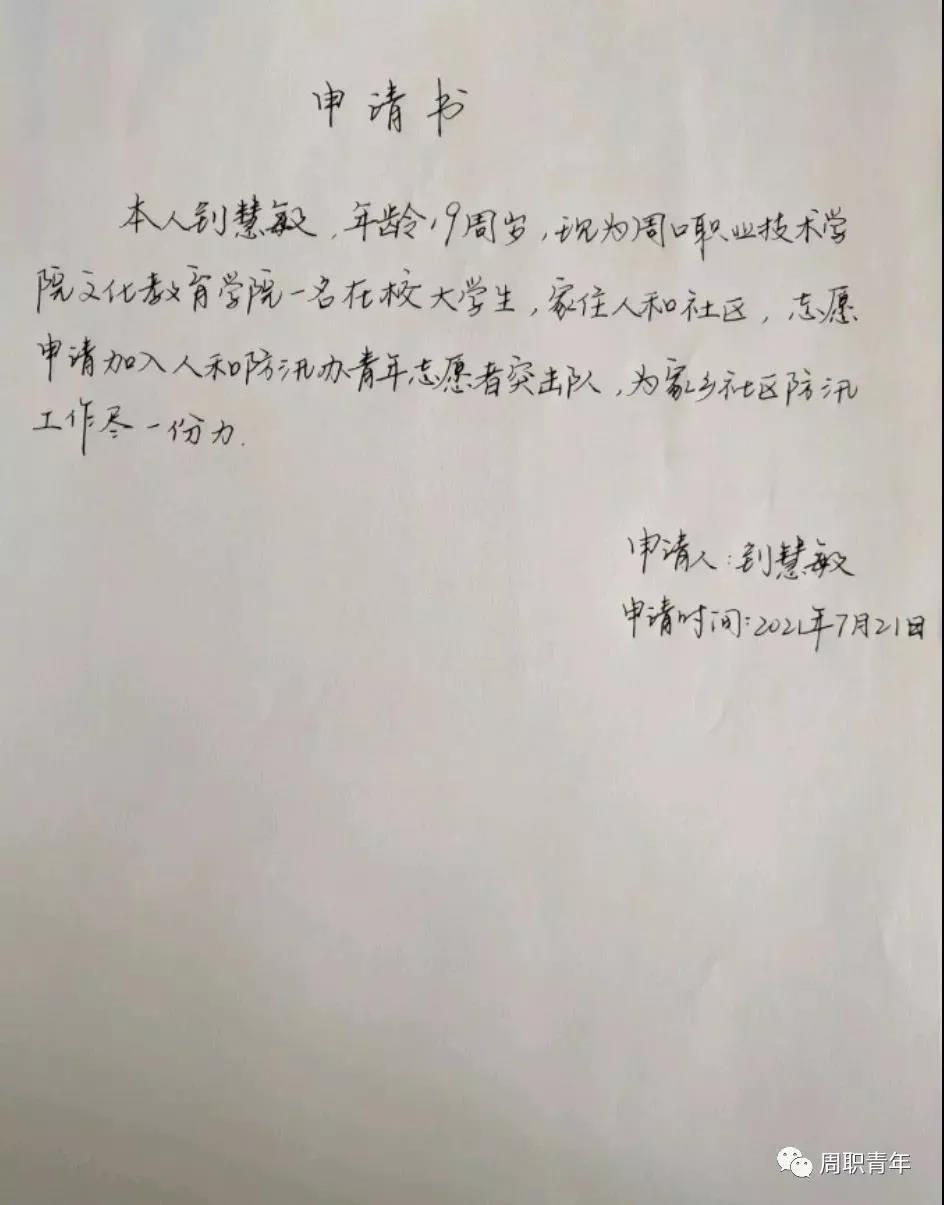 申请书
本人别慧敏，年龄19周岁，现为周口职业技术学
院文化教育学院一名在校大学生，家住人和社区，志愿
申请加入人和防汛办青年志愿者突击队，为家乡社区防汛
工作尽一份力.
申请人：别慧敏
申请时间：2021年7月21日
周职青年